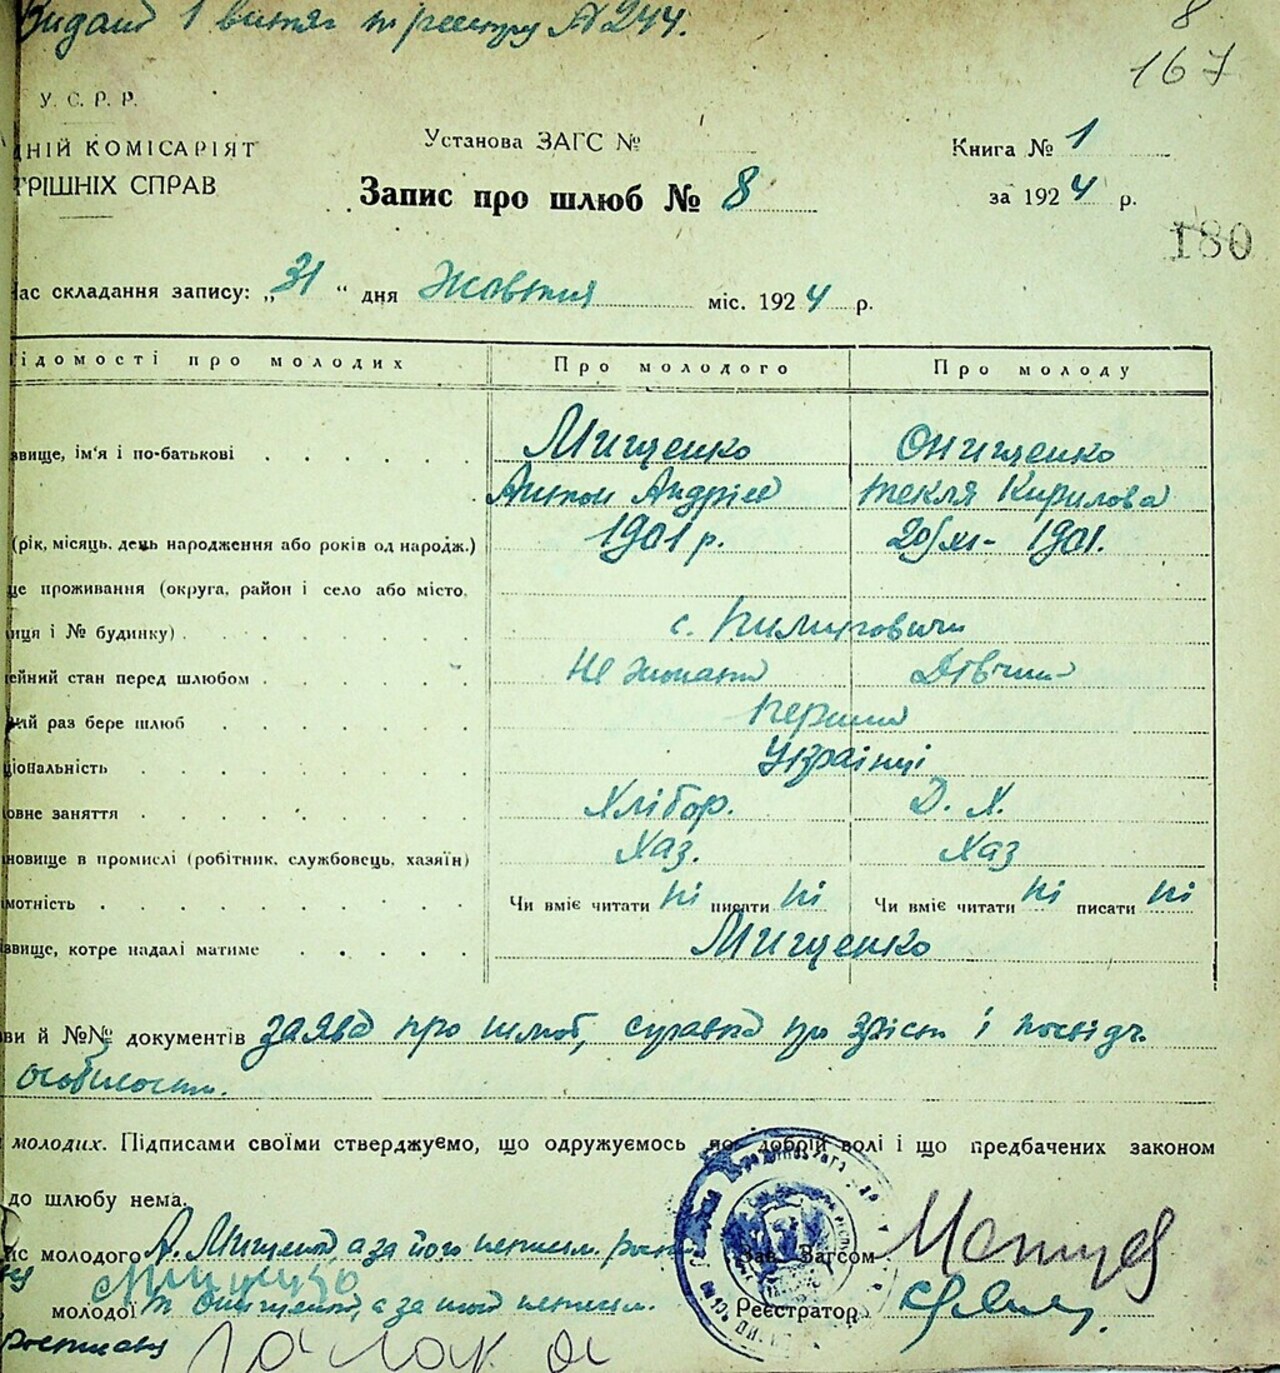 Видано 1 витяг по реєстру № 244.
8
167
У. С. Р. Р.
НІЙ КОМІСАРІЯТ
ТРІШНІХ СПРАВ
Установа ЗАГС №
Запис про шлюб № 8
Книга № 1
за 1924 р.
180
ас складання запису: „31“ дня Жовтня міс. 1924 р.
ідомості про молодих Про молодого Про молоду
звище, ім'я і по-батькові Мищенко Онищенко
Антон Андріев текля Кирилова
(рік, місяць, день народження або років од народж.) 1901 р. 20/XI- 1901.
це проживання (округа, район і село або місто,
иця і № будинку) с.
ейний стан перед шлюбом Не жонат Дівчин
ий раз бере шлюб перший
ціональність Українці
овне заняття Хлібор. Д. Х.
новище в промислі (робітник, службовець, хазяїн) Хаз. Хаз
мотність Чи вміє читати ні писати ні Чи вміє читати ні писати ні
звище, котре надалі матиме Мищенко
ви й №№ документів заява про шлюб, справка про зріст і посвідч.
особистости.
молодих. Підписами своїми стверджуємо, що одружуємось по добрій волі і що предбачених законом
до шлюбу нема.
ис молодого А. Мищенко, а за його неписьм. розп
Зав. Загсом
молодої т Онищенко, а за неписьм.
Реєстратор